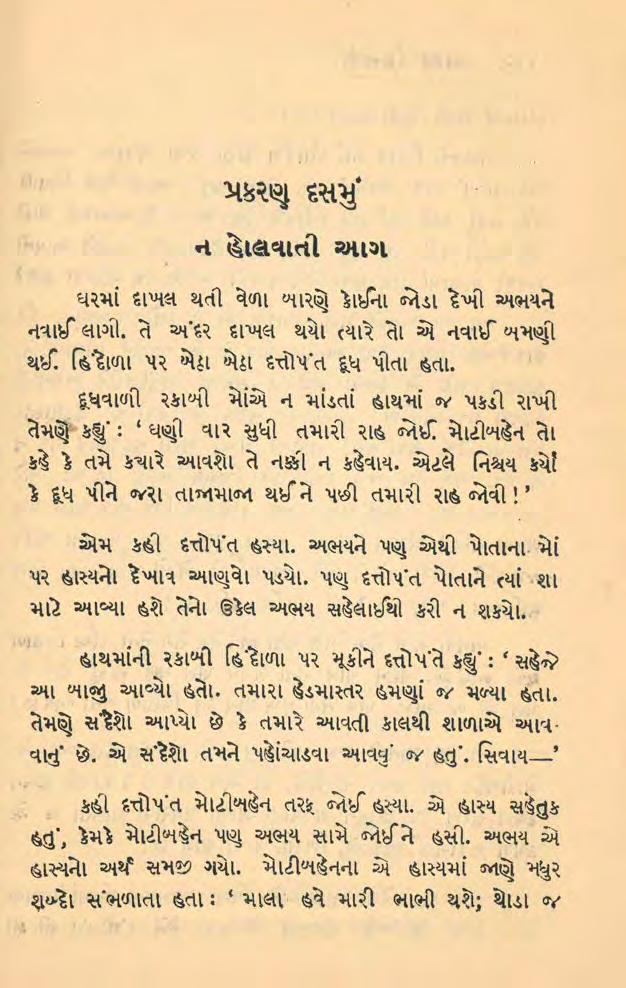 પ્રકરણ દસમું
ન હોલવાતી આગ
ઘરમાં દાખલ થતી વેળા બારણે કોઈના જોડા દેખી અભયને
નવાઈ લાગી. તે અંદર દાખલ થયો ત્યારે તો એ નવાઈ બમણી
થઈ. હિંદોળા પર બેઠા બેઠા દત્તોપંત દૂધ પીતા હતા.
દૂધવાળી રકાબી મોંએ ન માંડતાં હાથમાં જ પકડી રાખી
તેમણે કહ્યું : ‘ ઘણી વાર સુધી તમારી રાહ જોઈ. મોટીબહેન તો
કહે કે તમે ક્યારે આવશો તે નક્કી ન કહેવાય. એટલે નિશ્ચય કર્યો
કે દૂધ પીને જરા તાજામાજા થઈ ને પછી તમારી રાહ જોવી ! ’
એમ કહી દત્તોપંત હસ્યા. અભયને પણ એથી પોતાના મોં
પર હાસ્યનો દેખાવ આણવો પડયો. પણ દત્તોપંત પોતાને ત્યાં શા
માટે આવ્યા હશે તેનો ઉકેલ અભય સહેલાઈથી કરી ન શકયો.
હાથમાંની રકાબી હિંદોળા પર મૂકીને દત્તોપંતે કહ્યું : ‘ સહેજે
આ બાજુ આવ્યો હતો. તમારા હેડમાસ્તર હમણાં જ મળ્યા હતા.
તેમણે સંદેશો આપ્યો છે કે તમારે આવતી કાલથી શાળાએ આવ-
વાનું છે. એ સંદેશો તમને પહોંચાડવા આવવું જ હતું. સિવાય—’
કહી દત્તોપંત મોટીબહેન તરફ જોઈ હસ્યા. એ હાસ્ય સહેતુક
હતું, કેમકે મોટીબહેન પણ અભય સામે જોઈ ને હસી. અભય એ
હાસ્યનો અર્થ સમજી ગયો. મોટીબહેનના એ હાસ્યમાં જાણે મધુર
શબ્દો સંભળાતા હતા : ‘ માલા હવે મારી ભાભી થશે; થોડા જ